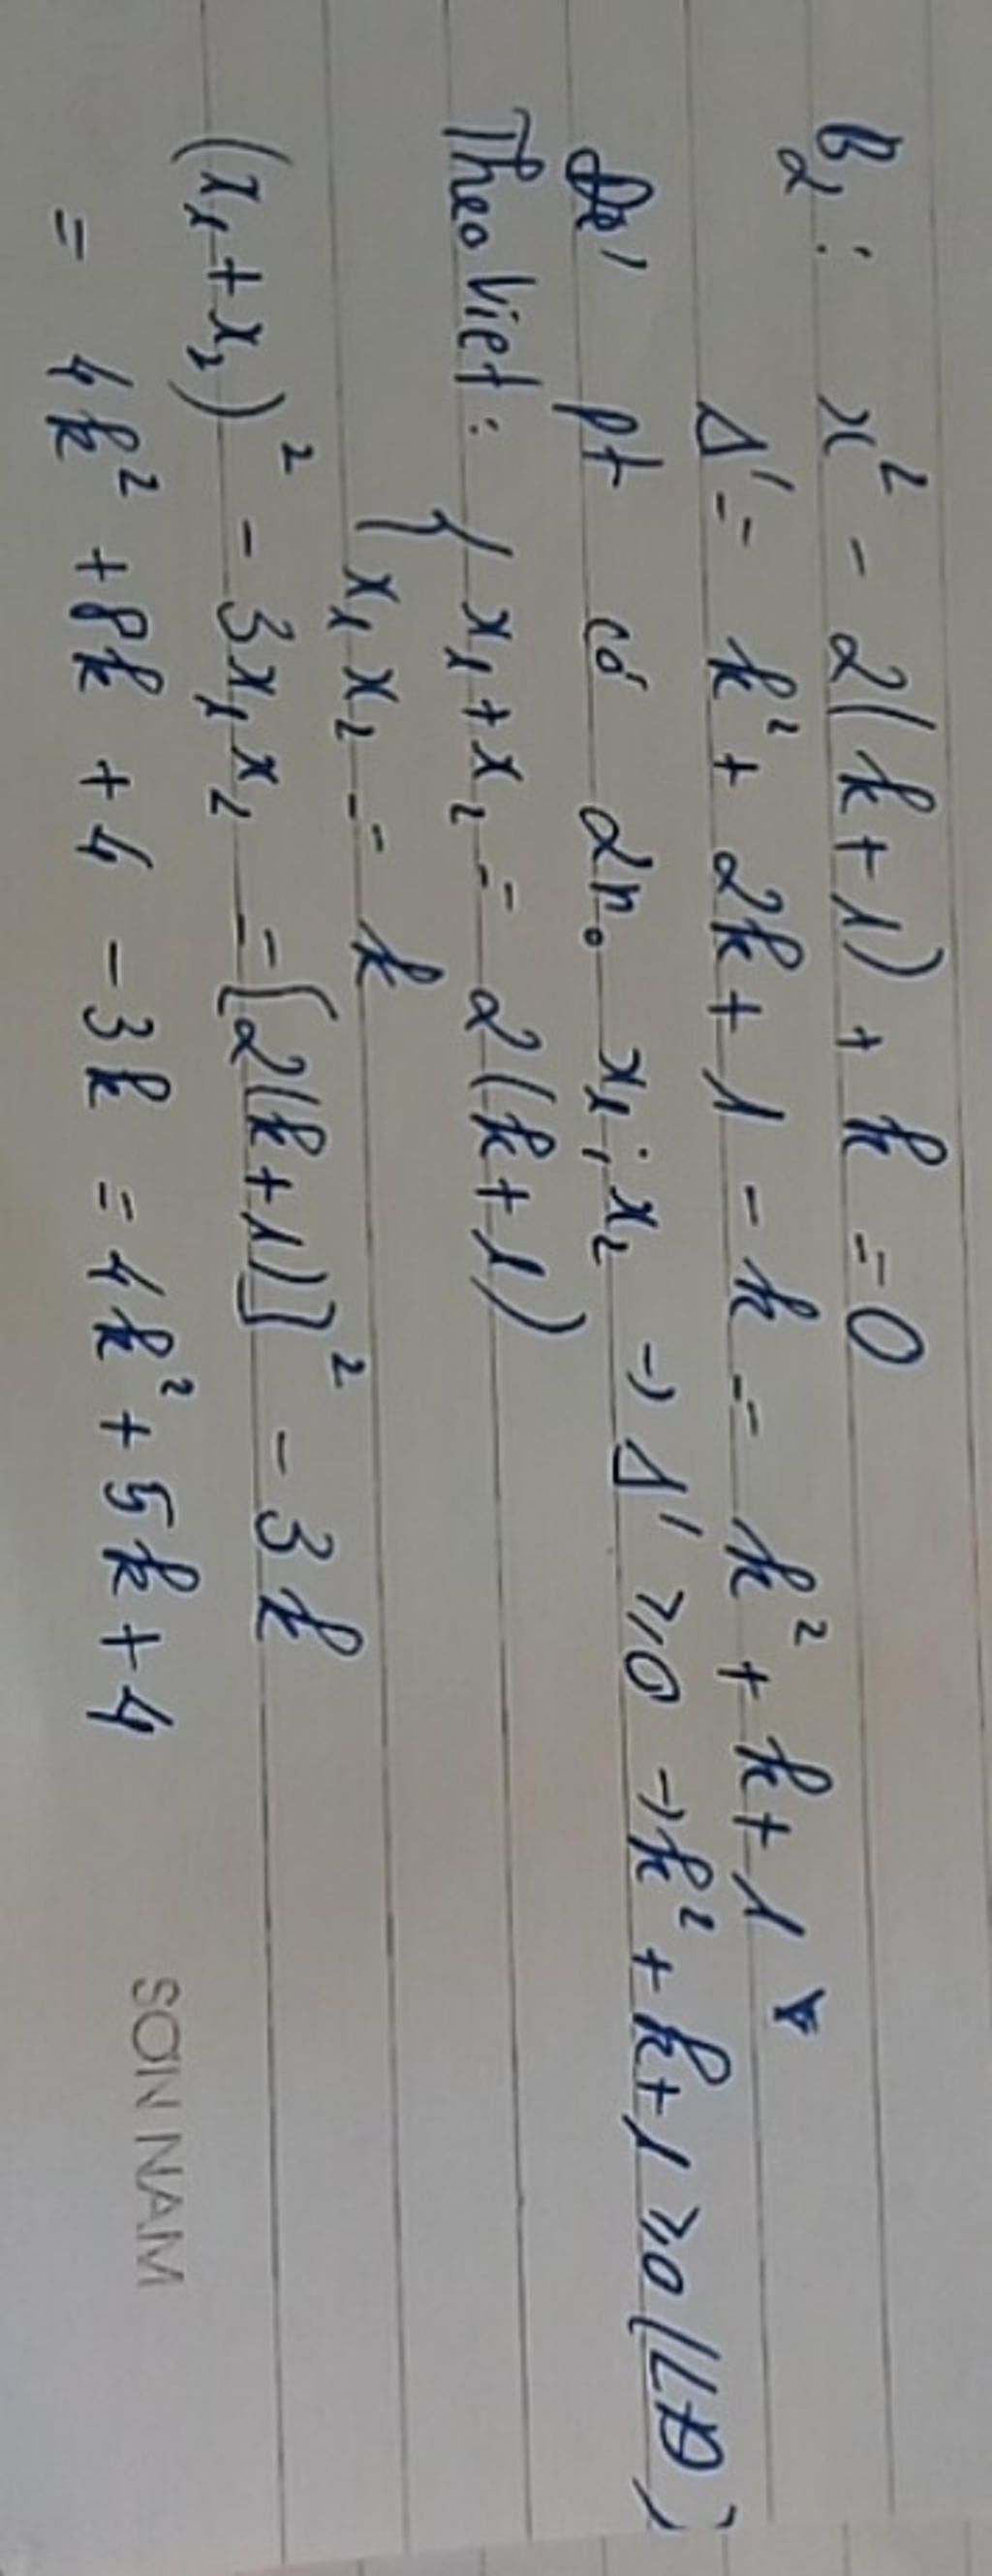 B2: x² - 2(k+1) + k = 0
Δ' = k² + 2k + 1 - k = k² + k + 1
Để pt có 2no x₁; x₂ → Δ' ≥ 0 → k² + k + 1 ≥ 0 (LĐ)
Theo Viet: { x₁ + x₂ = 2(k+1)
{ x₁x₂ = k
(x₁ + x₂)² - 3x₁x₂ = [2(k+1)]² - 3k
= 4k² + 8k + 4 - 3k = 4k² + 5k + 4
SON NAM